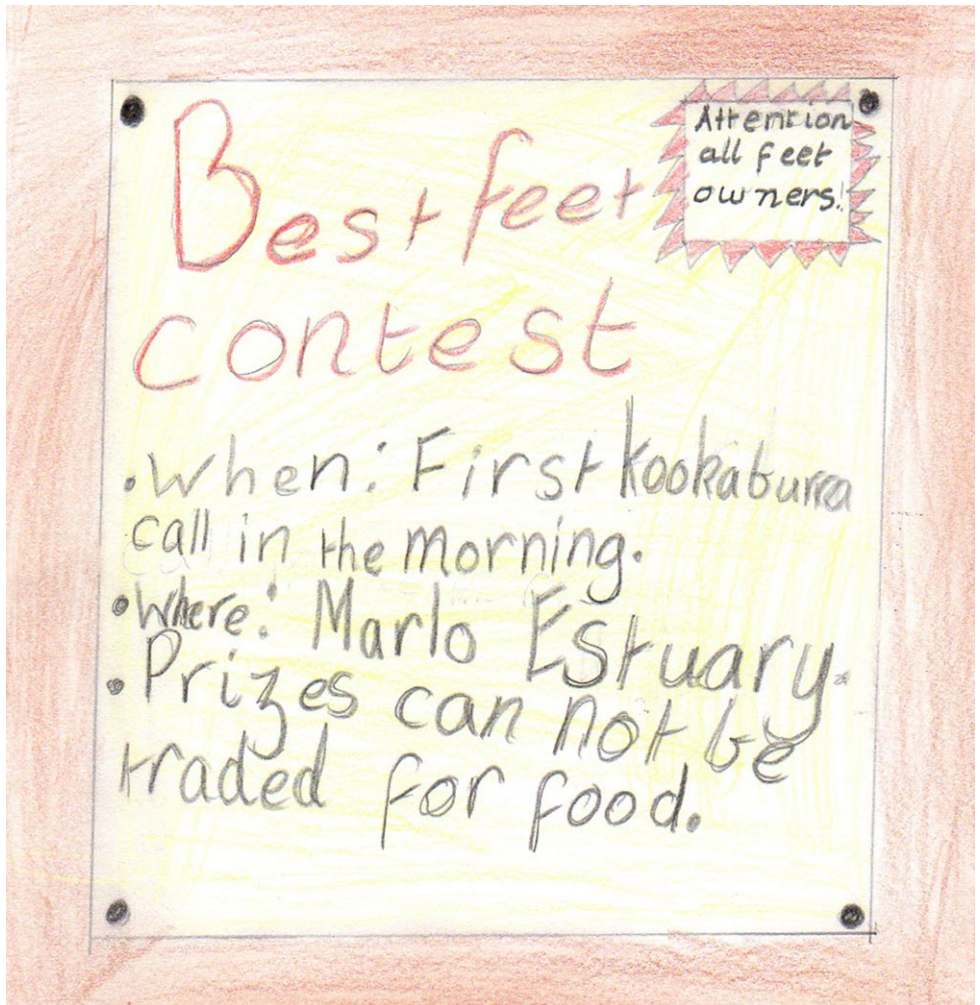 Best feet
contest
Attention
all feet
owners!
• When: First kookaburra
call in the morning.
• Where: Marlo Estuary.
• Prizes can not be
traded for food.